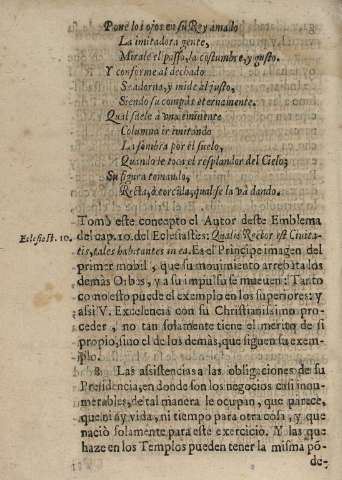 Pone los ojos en su Rey amado
La imitadora gente,
Mirale el passo, la costumbre, y gusto.
Y conforme al dechado
Se adorna, y mide al justo,
Siendo su compàs eternamente.
Qual suele a vna eminente
Columna ir imitando
La sombra por el suelo,
Quando le toca el resplandor del Cielo;
Su figura tomando,
Recta, ò torcida, qual se la và dando.
Tomò este concepto el Autor deste Emblema
Eclesiast. 10. del cap. 10. del Eclesiastes: Qualis Rector est Ciuita-
tis, tales habitantes in ea. Es el Principe imagen del
primer mobil, que su mouimiento arrebata los
demàs Orbes, y a su impulso se mueuen: Tanto
como esto puede el exemplo en los superiores: y
assi V. Excelencia con su Christianissimo pro-
ceder, no tan solamente tiene el merito de si
propio, sino el de los demàs, que siguen su exem-
plo.
8 Las assistencias a las obligaciones de su
Presidencia, en donde son los negocios casi innu-
merables, de tal manera le ocupan, que parece,
que ni ay vida, ni tiempo para otra cosa, y que
naciò solamente para este exercicio. Y las que
haze en los Templos pueden tener la misma pō-
de-